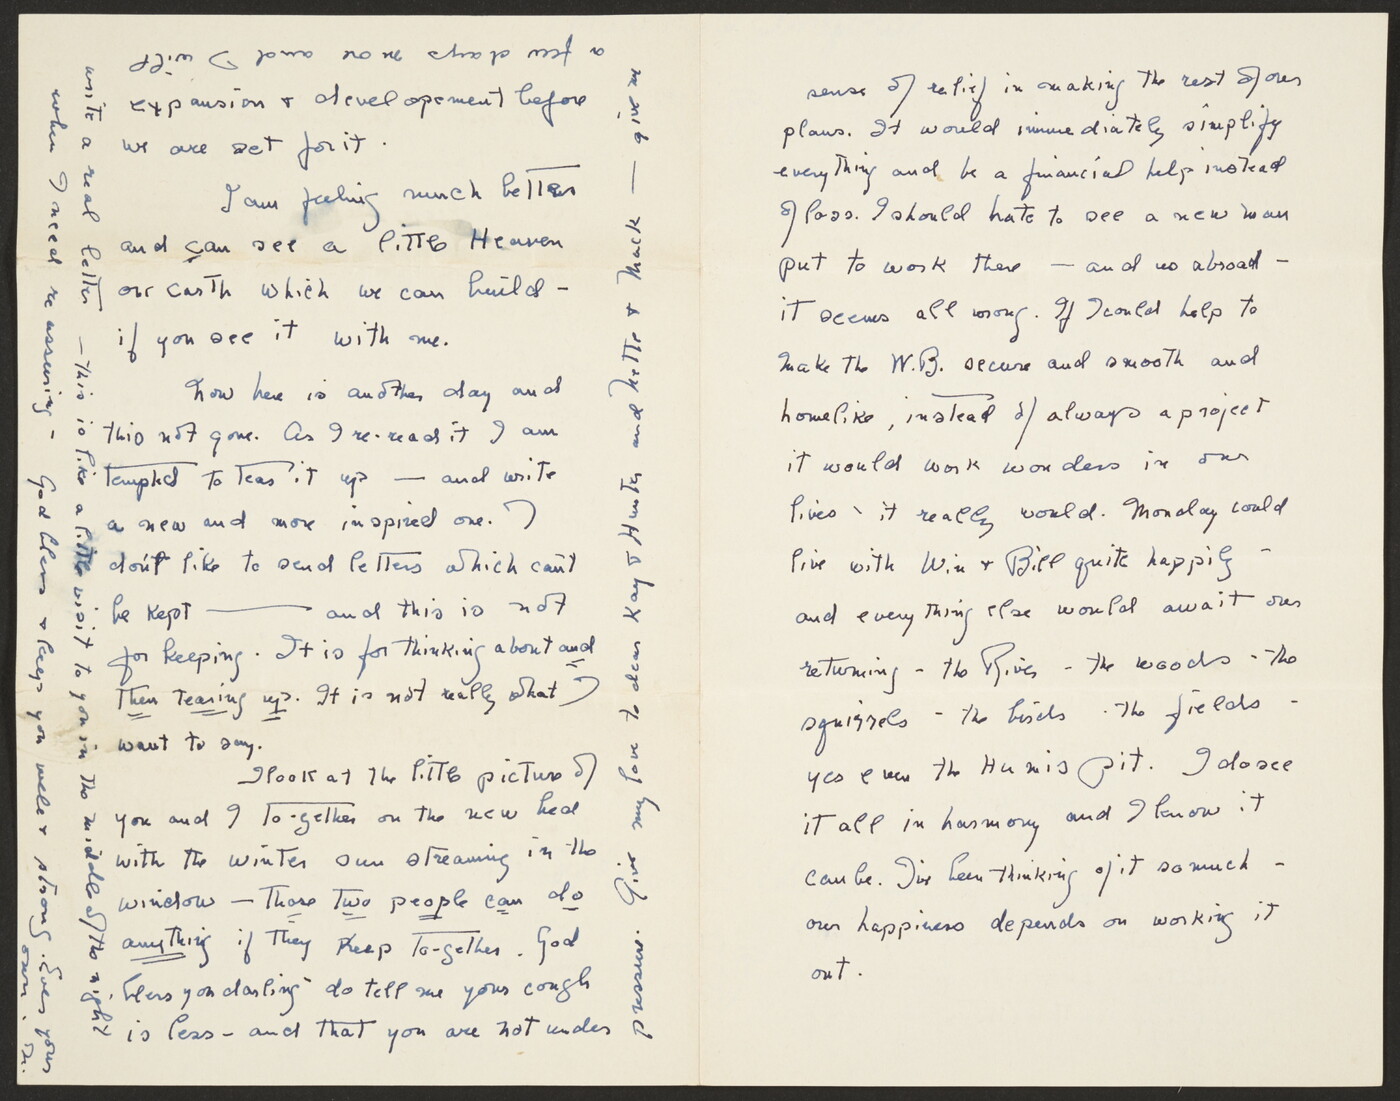 expansion & developement before
we are set for it.
I am feeling much better
and can see a little Heaven
our earth which we can build -
if you see it with me.
Now here is another day and
this not gone. As I re-read it I am
tempted to tear it up — and write
a new and more inspired one. I
don't like to send letters which can't
be kept —— and this is not
for keeping. It is for thinking about and
then tearing up. It is not really what I
want to say.
I look at the little picture of
you and I to-gether on the new bed
with the winter sun streaming in the
window — those two people can do
anything if they keep to-gether. God
bless you darling - do tell me your cough
is less - and that you are not under
pressure. Give my love to dear Kay & Hunter and Kette & Mack — give me
a few days more and I will
write a real letter — this is like a little visit to you in the middle of the night
when I need reassuring - God bless & keep you well & strong. Ever your
own.
sense of relief in making the rest of our
plans. It would immediately simplify
everything and be a financial help instead
of loss. I should hate to see a new man
put to work there — and us abroad -
it seems all wrong. If I could help to
make the W.B. secure and smooth and
homelike, instead of always a project
it would work wonders in our
lives - it really would. Monday could
live with Win & Bill quite happily -
and everything else would await our
returning - the River - the woods - the
squirrels - the birds - the fields -
yes even the Humis pit. I do see
it all in harmony and I know it
can be. I've been thinking of it so much -
our happiness depends on working it
out.